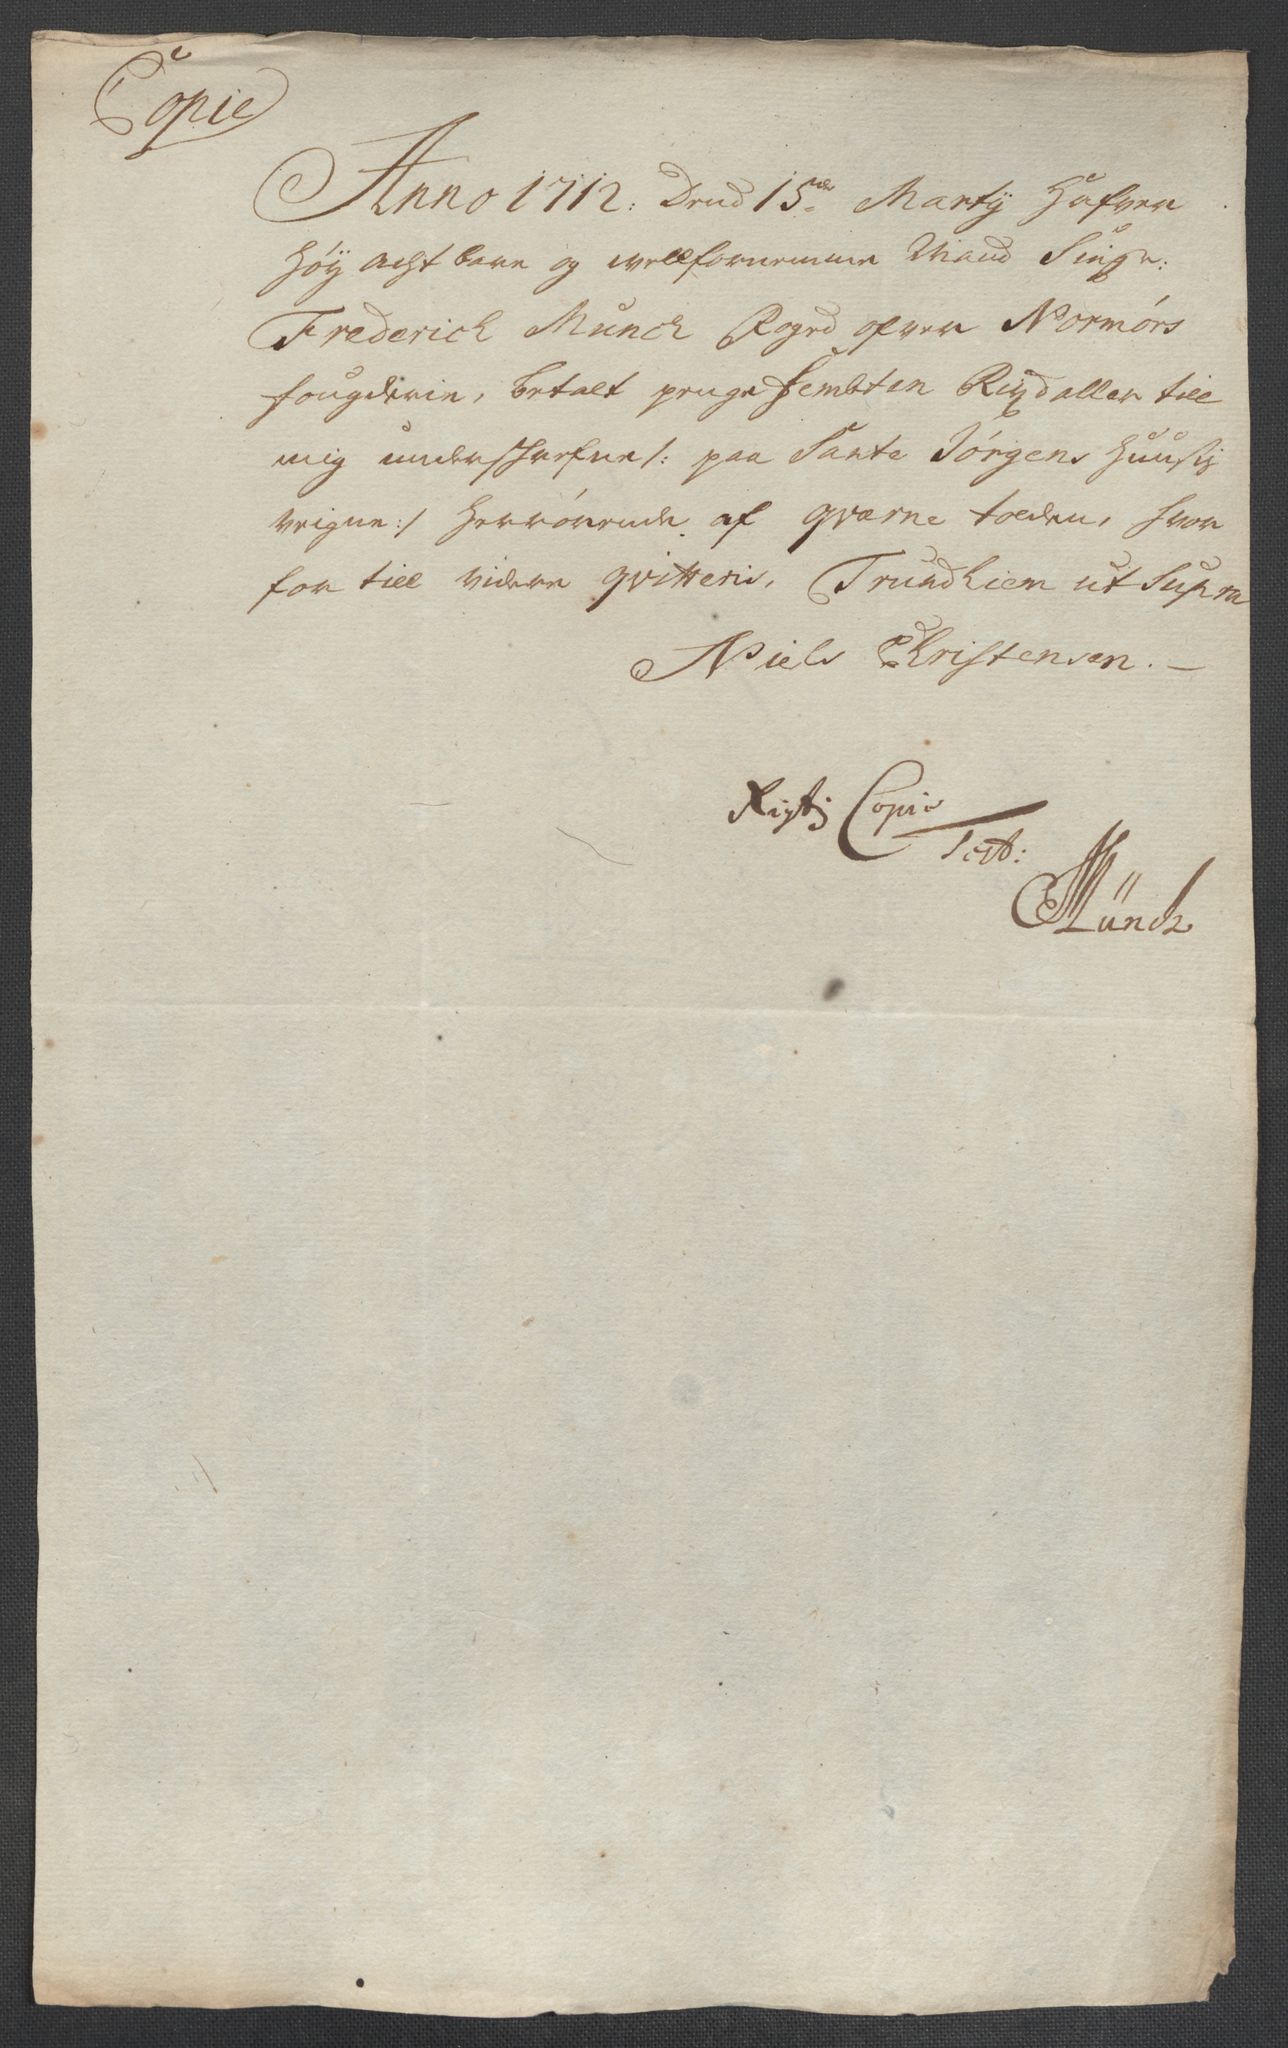 Copie
Anno 1712. Dend 15de Marty Hafver
Høy acht bare og wellfornemme Mand Singr:
Frederich Munch Foged ofver Normørs
fougderie, betalt penge fembten Rixdaller till
mig underskrefne /: paa Sante Jørgens Huusis
veigne :/ Herrørende af qværne tolden, hvor
for till videre qvitteris, Trundhiem ut Supra
Niels Christensen. —
Rigtig Copie
Test:
Münch